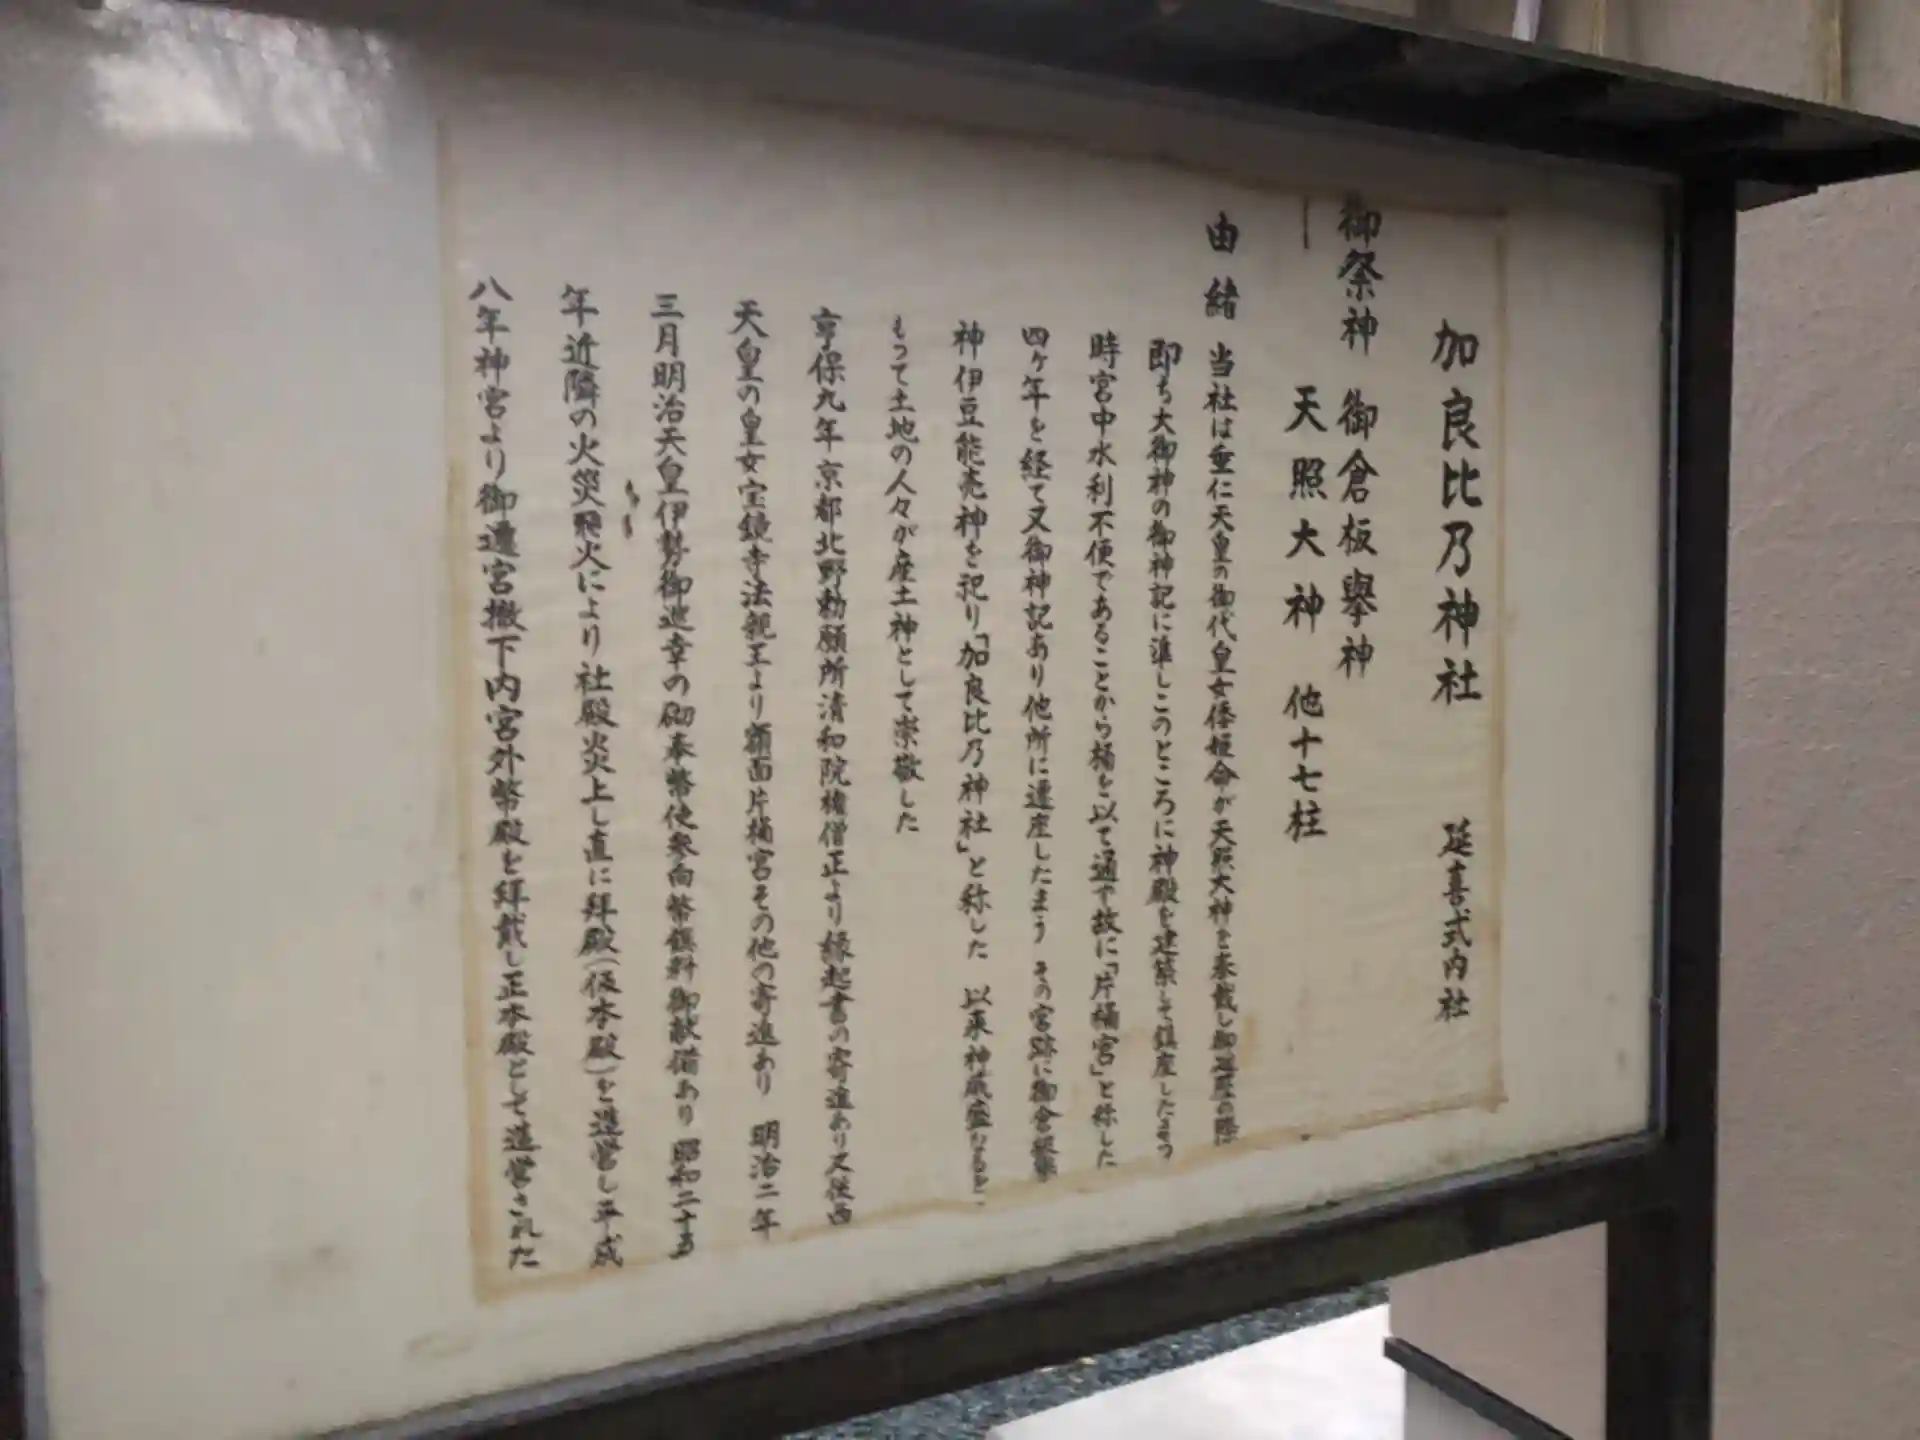 加良比乃神社 延喜式内社
御祭神 御倉板擧神
天照大神 他十七柱
由緒 当社は垂仁天皇の御代皇女倭姫命が天照大神を奉戴し御巡歴の際
即ち大御神の御神記に準しこのところに神殿を建築して鎮座したまう
時宮中水利不便であることから樋を以て通す故に「片樋宮」と称した
四ヶ年を経て又御神記あり他所に遷座したまう その宮跡に御倉板擧
神伊豆能売神を祀り「加良比乃神社」と称した 以来神威盛なるを
もって土地の人々が産土神として崇敬した
享保九年京都北野勅願所清和院権僧正より縁起書の寄進あり又後西
天皇の皇女宝鏡寺法親王より額面片樋宮その他の寄進あり 明治二年
三月明治天皇伊勢御巡幸の砌奉幣使参向幣饌料御献備あり 昭和二十五
年近隣の火災飛火により社殿炎上し直に拝殿(仮本殿)を造営し平成
八年神宮より御遷宮撤下内宮外幣殿を拝戴し正本殿として造営された